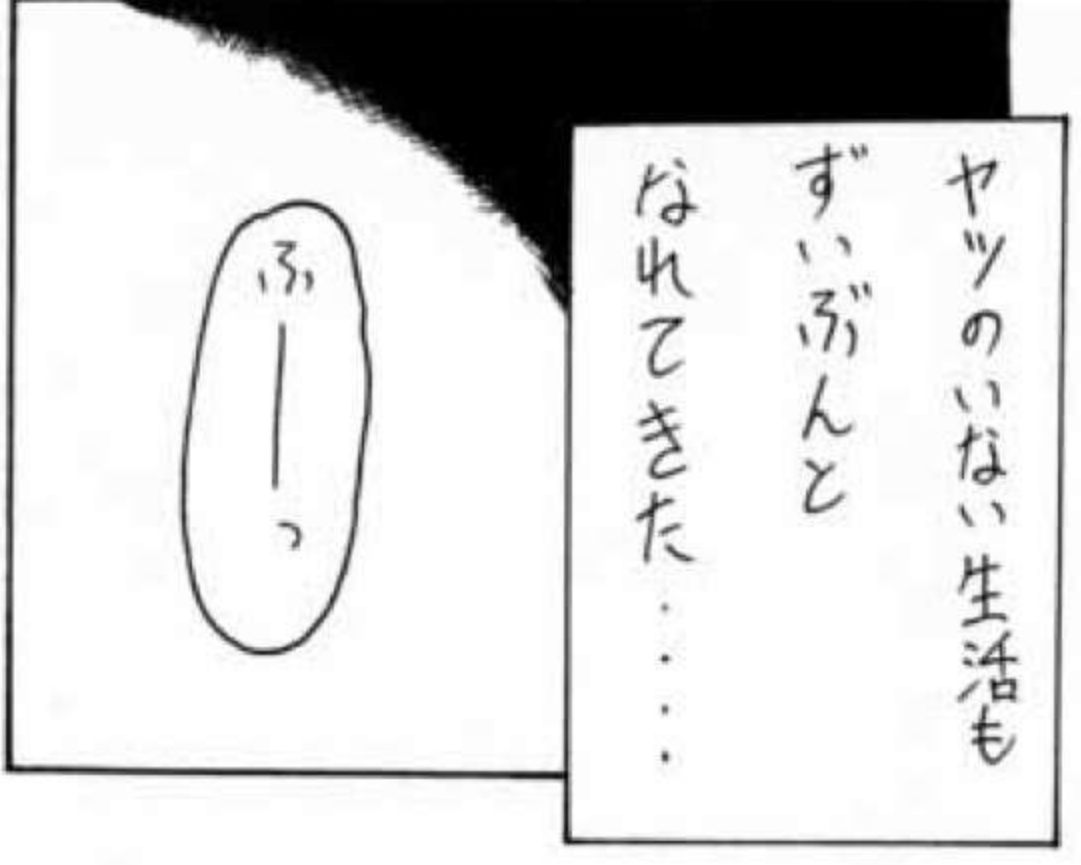 ヤツのいない生活も
ずいぶんと
なれてきた・・・・
ふーっ